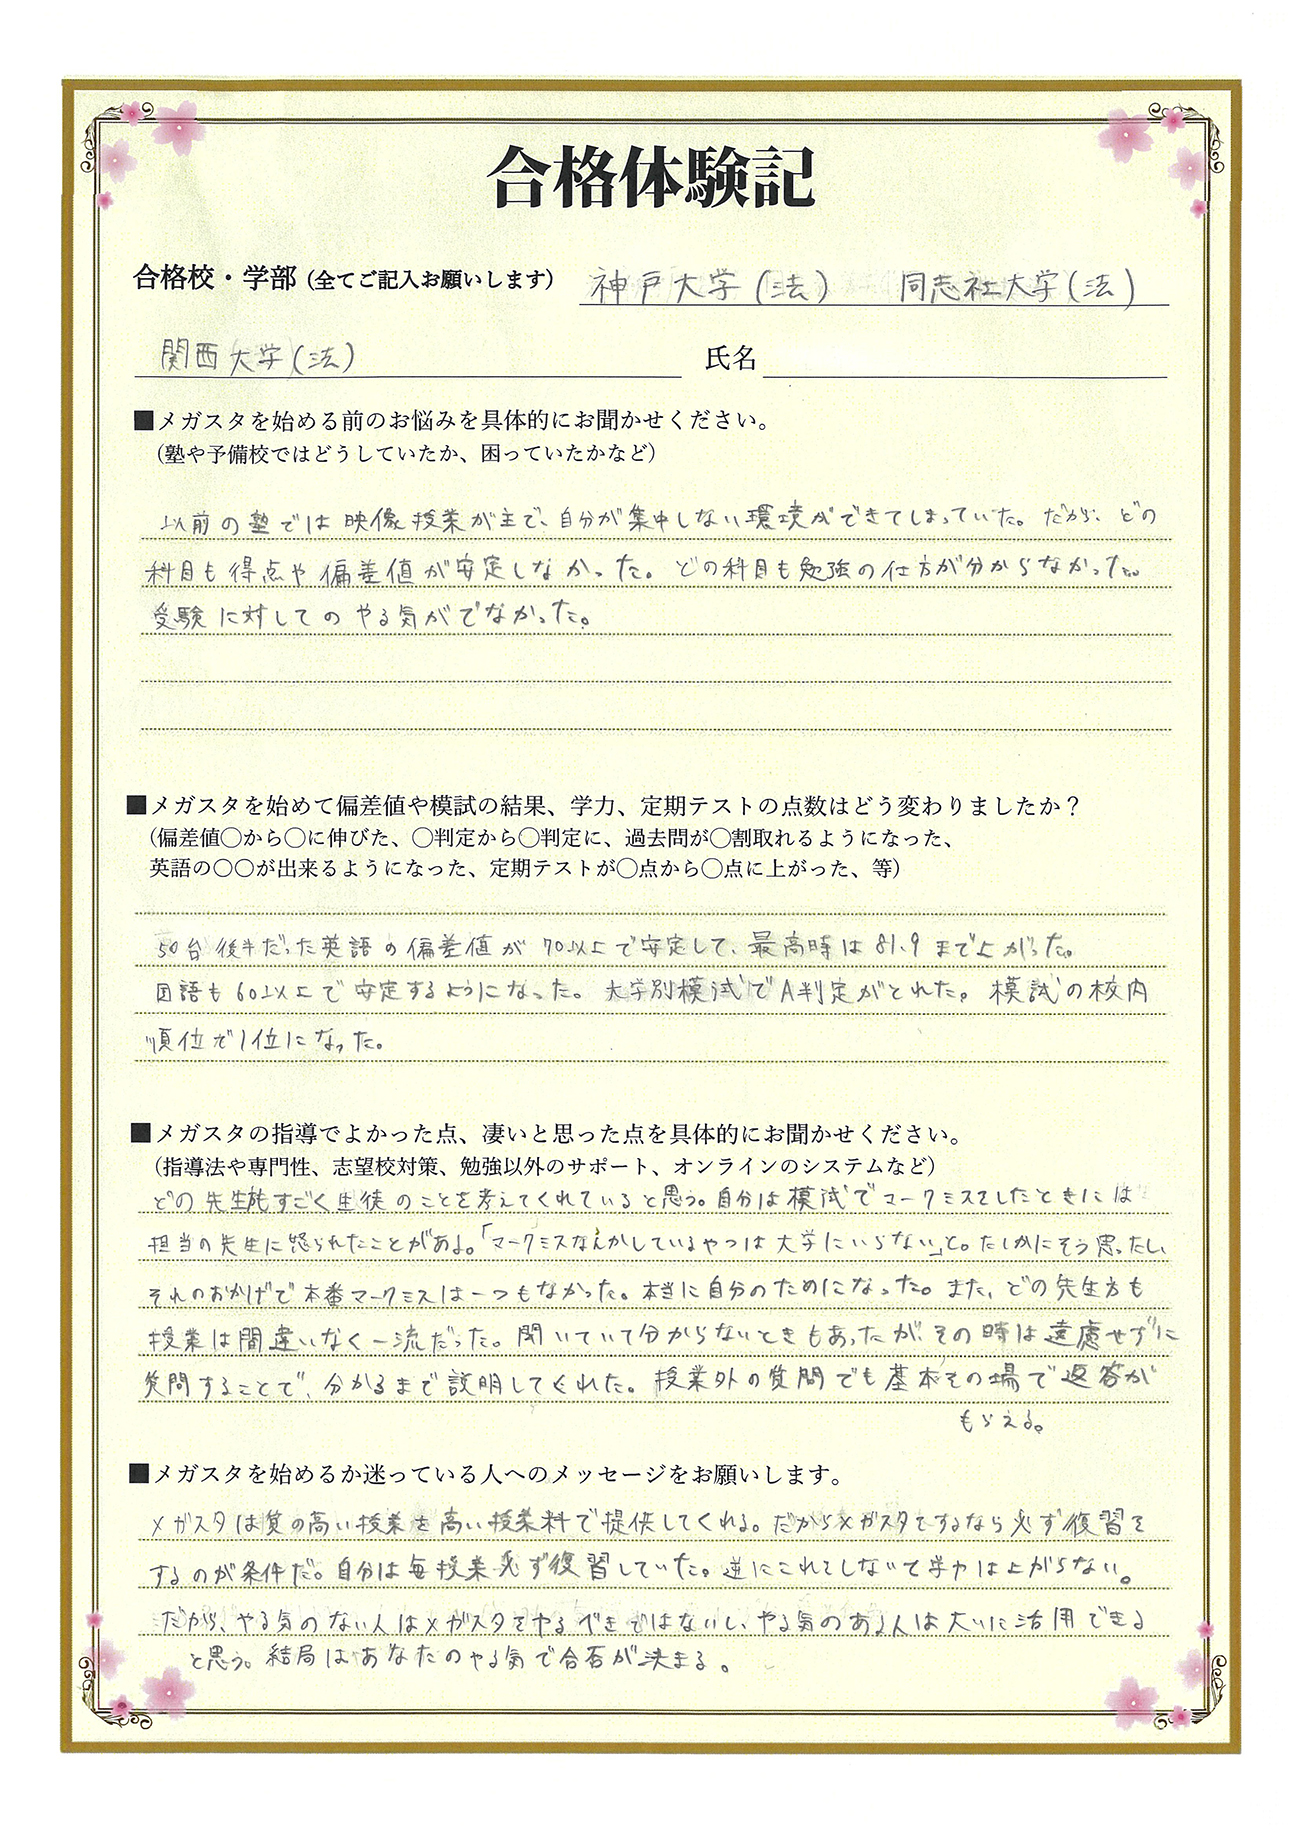 合格体験記
合格校・学部（全てご記入お願いします） 神戸大学（法） 同志社大学（法）
関西大学（法） 氏名
■メガスタを始める前のお悩みを具体的にお聞かせください。
（塾や予備校ではどうしていたか、困っていたかなど）
以前の塾では映像授業が主で、自分が集中しない環境ができてしまっていた。だから、どの
科目も得点や偏差値が安定しなかった。どの科目も勉強の仕方が分からなかった。
受験に対してのやる気がでなかった。
■メガスタを始めて偏差値や模試の結果、学力、定期テストの点数はどう変わりましたか？
（偏差値〇から〇に伸びた、〇判定から〇判定に、過去問が〇割取れるようになった、
英語の〇〇が出来るようになった、定期テストが〇点から〇点に上がった、等）
50台後半だった英語の偏差値が70以上で安定して、最高時は81.9まで上がった。
国語も60以上で安定するようになった。大学別模試でA判定がとれた。模試の校内
順位で1位になった。
■メガスタの指導でよかった点、凄いと思った点を具体的にお聞かせください。
（指導法や専門性、志望校対策、勉強以外のサポート、オンラインのシステムなど）
どの先生もすごく生徒のことを考えてくれていると思う。自分は模試でマークミスをしたときには
担当の先生に怒られたことがある。「マークミスなんかしているやつは大学にいらない」と。たしかにそう思ったし、
それのおかげで本番マークミスは一つもなかった。本当に自分のためになった。また、どの先生方も
授業は間違いなく一流だった。聞いていて分からないときもあったが、その時は遠慮せずに
質問することで、分かるまで説明してくれた。授業外の質問でも基本その場で返答が
もらえる。
■メガスタを始めるか迷っている人へのメッセージをお願いします。
メガスタは質の高い授業を高い授業料で提供してくれる。だからメガスタをするなら必ず復習を
するのが条件だ。自分は毎授業必ず復習していた。逆にこれをしないで学力は上がらない。
だから、やる気のない人はメガスタをやるべきではないし、やる気のある人は大いに活用できる
と思う。結局はあなたのやる気で合否が決まる。